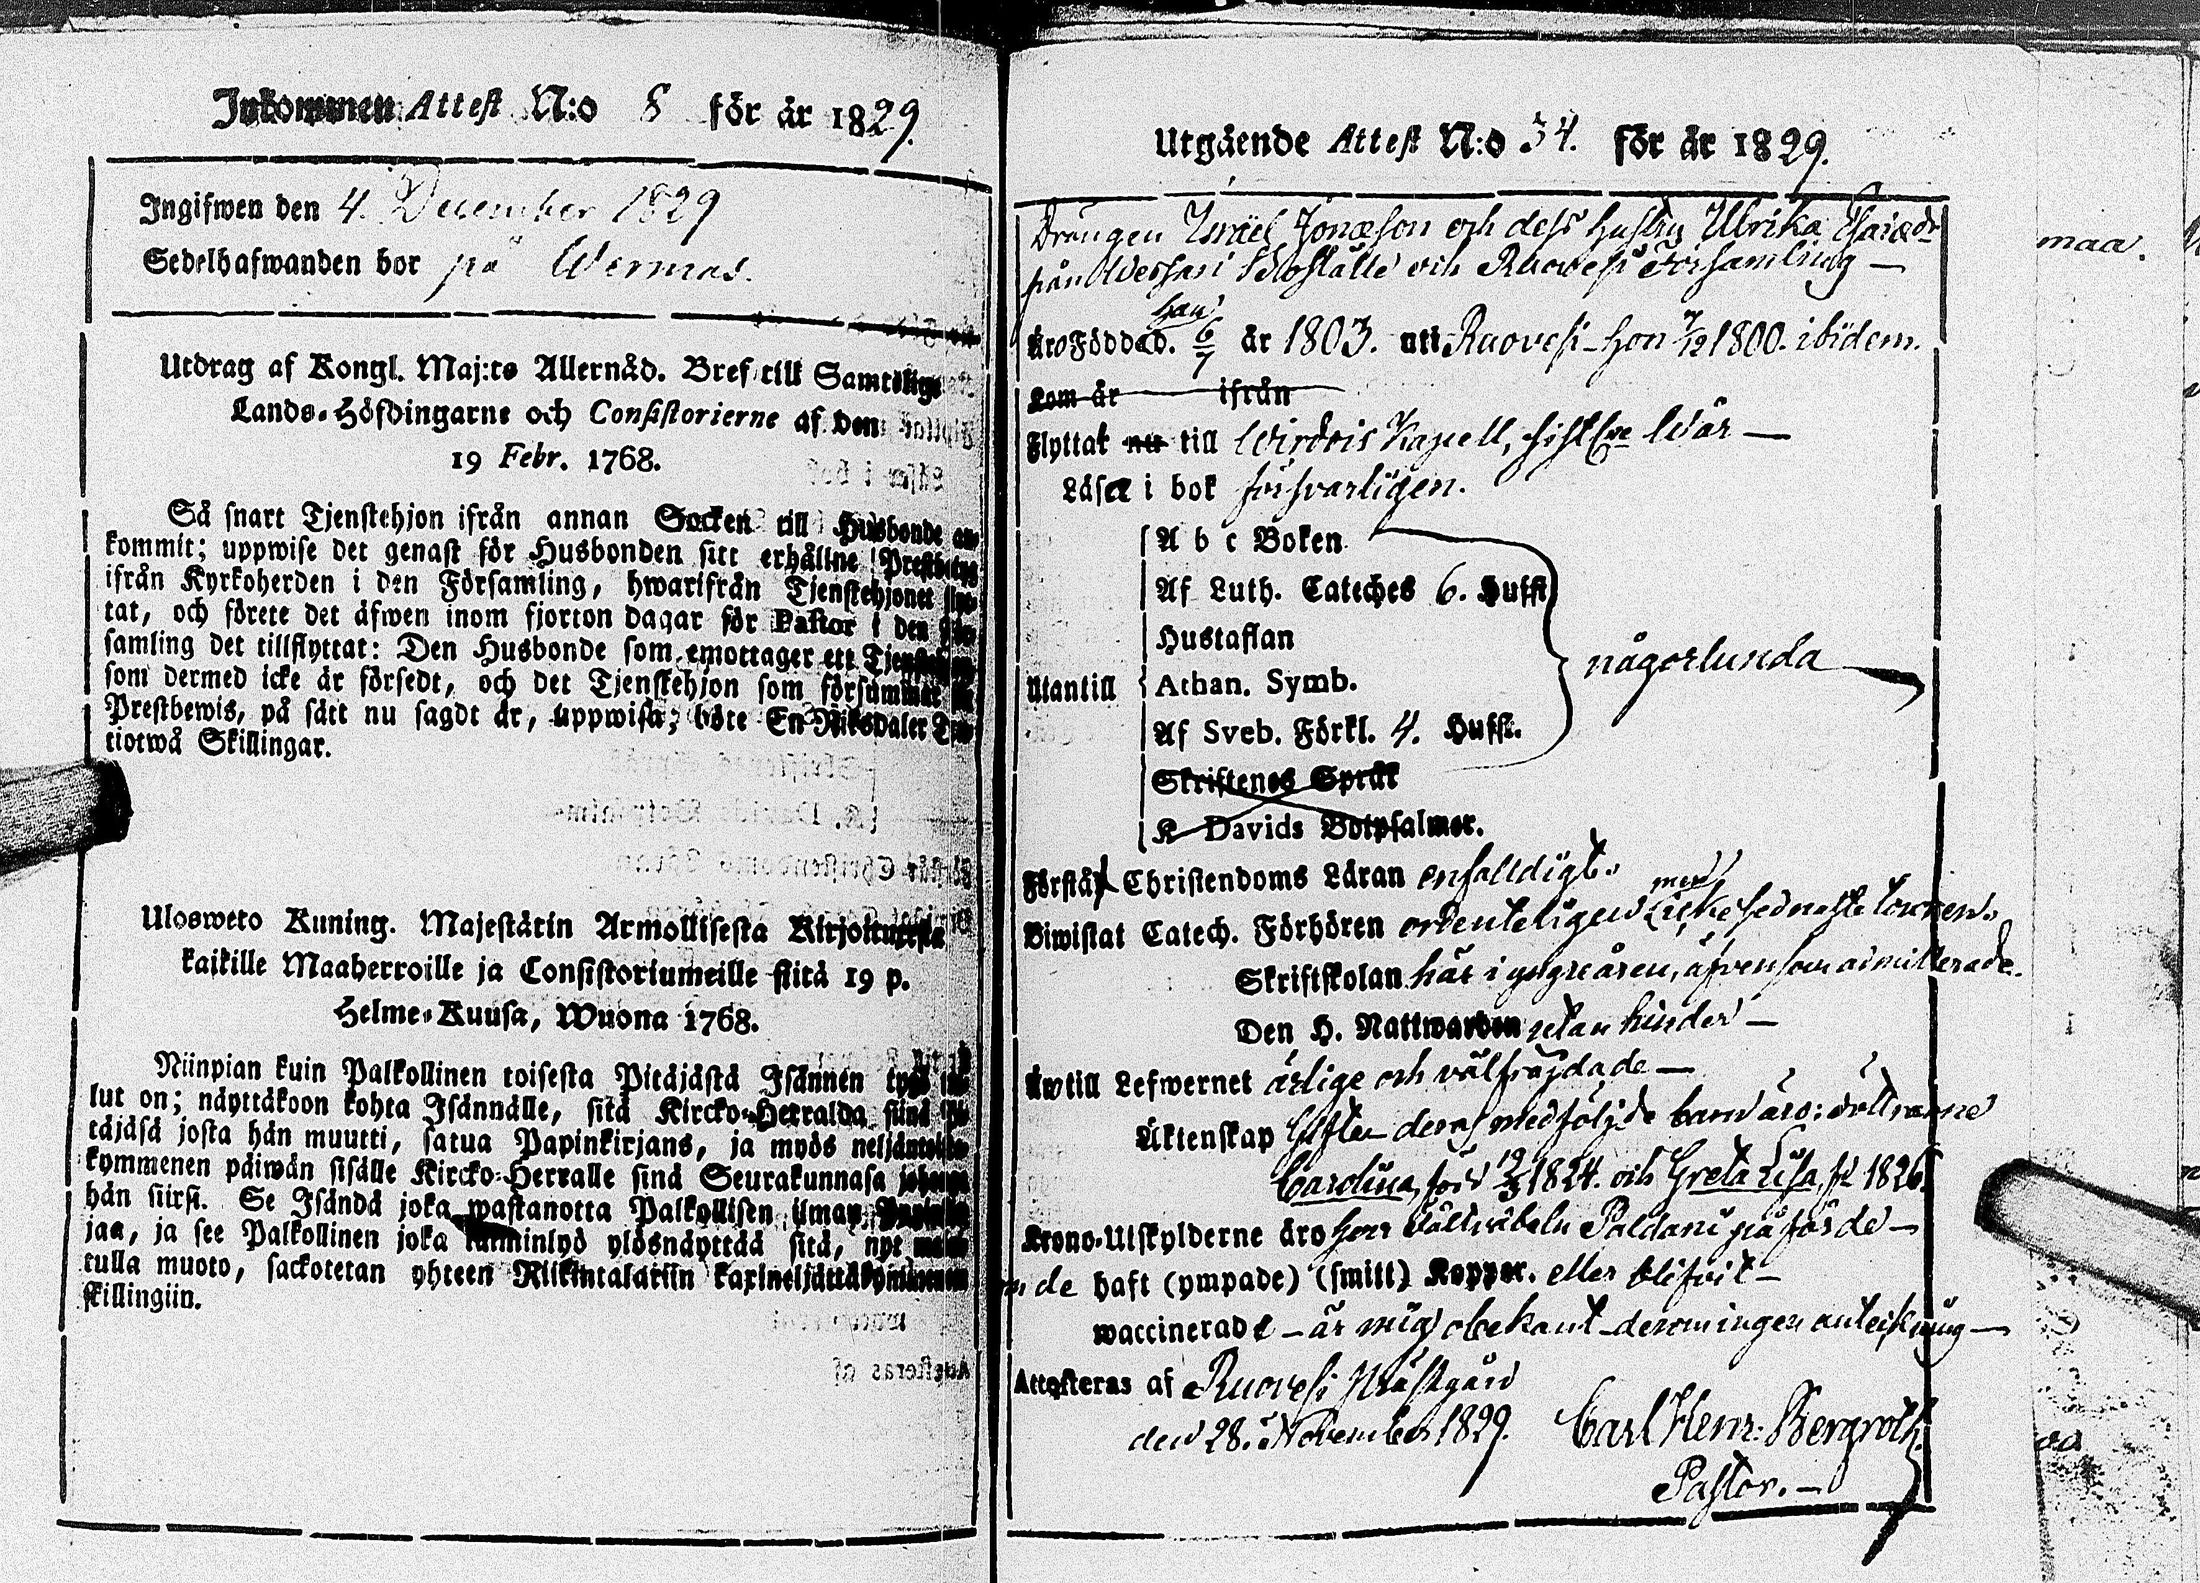 Inkommen Attest N:o 8 för år 1829.
Ingifwen den 4. December 1829
Sedelhafwanden bor på Wermas.
Utdrag af Kongl. Maj:ts Allernåd. Bref till Samtelige
Lands-Höfdingarne och Consistorierne af den
19 Febr. 1768.
Så snart Tjenstehjon ifrån annan Socken till Husbonde an-
kommit; uppwise det genast för Husbonden sitt erhållne Prestbetyg
ifrån Kyrkoherden i den Församling, hwarifrån Tjenstehjonet flyt-
tat, och förete det äfwen inom fjorton dagar för Pastor i den För-
samling det tillflyttat: Den Husbonde som emottager ett Tjenstehjon
som dermed icke är försedt, och det Tjenstehjon som försummar
Prestbewis, på sätt nu sagdt är, uppwisa; böte En Riksdaler
tiotwå Skillingar.
Ulosweto Kuning. Majestätin Armollisesta Kirjoituresta
kaikille Maaherroille ja Consistoriumeille siitä 19 p.
Helme-Kuusa, Wuona 1768.
Niinpian kuin Palkollinen toisesta Pitäjästä Isännen tygö
lut on; näyttäkoon kohta Isännälle, sitä Kircko-Herralda siinä Pi-
täjäsä josta hän muutti, saatua Papinkirjans, ja myös neljäntoista-
kymmenen päiwän sisälle Kircko-Herralle sinä Seurakunnasa johonga
hän siirsi. Se Isändä joka wastanotta Palkollisen ilman
jaa, ja see Palkollinen joka laiminlyö ylösnäyttää sitä, nyt
tulla muoto, sackotetan yhteen Riikintalariin kaxineljättäkymmenen
skillingiin.
Utgående Attest N:o 34. för år 1829.
Drängen Israël Jonæson och dess hustru Ulrika Esaiædr
från Wessari Boställe och Ruovesi Församling —
han
Äro Födde d. 6/7 år 1803. uti Ruovesi – hon 7/12 1800. ibidem.
Kom år ifrån
Flyttat nu till Wirdois Kapell, sistl. Wår —
Läsa i bok försvarligen.
A b c Boken
Af Luth. Cateches 6. Hufst
Hustaflan
Utantill Athan. Symb. någorlunda
Af Sveb. Förkl. 4. Hufst.
Skriftenes Språk
K Davids Botpsalmer.
Förstå Christendoms Läran enfalldigt.
men
Biwistat Catech. Förhören ordenteligen icke sednaste
Skriftskolan här i yngre åren, äfven som admitterade.
Den H. Nattwarden utan hinder —
Äro till Lefwernet ärlige och välfräjdade —
Äktenskap Gifte deras medföljde barn äro: döttrarne
Carolina, född 19/3 1824. och Greta Lisa, f. 1826.
Krono-Utskylderne äro på förde —
de haft (ympade) (smitt) Koppor. eller blifvit —
waccinerade – är mig obekant – derom ingen anteckning —
Attesteras af Ruovesi Prästgård
den 28. November 1829. Carl Henr: Bergroth.
Pastor. —
maa.